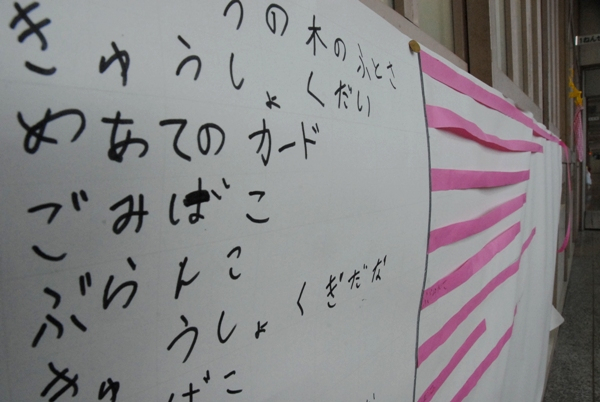 の木のふとさ
きゅうしょくだい
めあてのカード
ごみばこ
ぶらんこ
うしょくぎだな